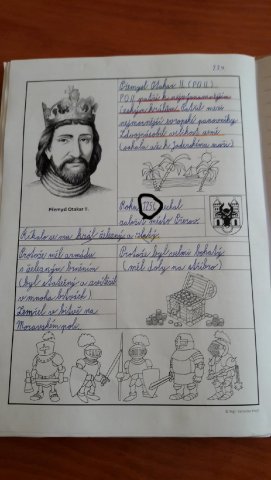 Přemysl Otakar II. (P.O.II)
P.O.II patřil k nejvýznamnějším
českým králům. Patřil mezi
nejmocnější evropské panovníky.
Zdvojnásobil velikost země
(sahala až k Jaderskému moři).
Přemysl Otakar II.
Roku 125
založit město
Říkalo se mu král železný a zlatý.
Protože měl armádu
s železným brněním
(byl statečný a zvítězil
v mnoha bitvách)
Zemřel v bitvě na
Moravském poli.
Protože byl velmi bohatý
(měl doly na stříbro)